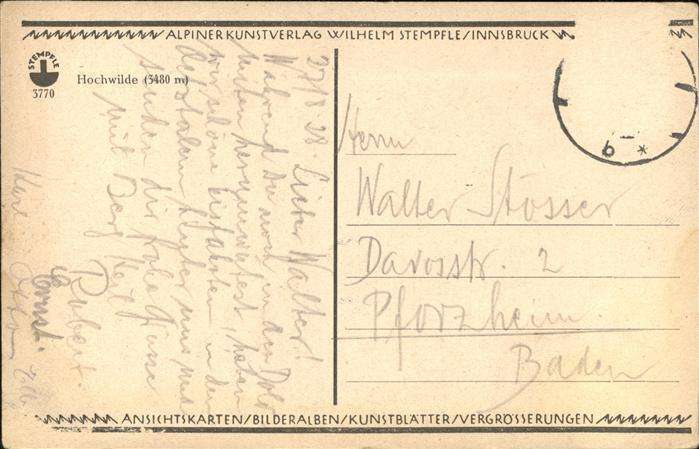 ALPINER KUNSTVERLAG WILHELM STEMPFLE/INNSBRUCK
STEMPFLE
3770
Hochwilde (3480 m)
27/8 28. Lieber Walter!
Während Du noch in den Dolo-
miten herum, haben
wir schöne in den
Oetztalern hinter uns, und
senden dir frohe Grüsse
mit Berg Heil
Robert.
Ernst.
Karl
Herrn
Walter Stösser
Davosstr. 2
Pforzheim.
Baden
6 *
ANSICHTSKARTEN/BILDERALBEN/KUNSTBLÄTTER/VERGRÖSSERUNGEN